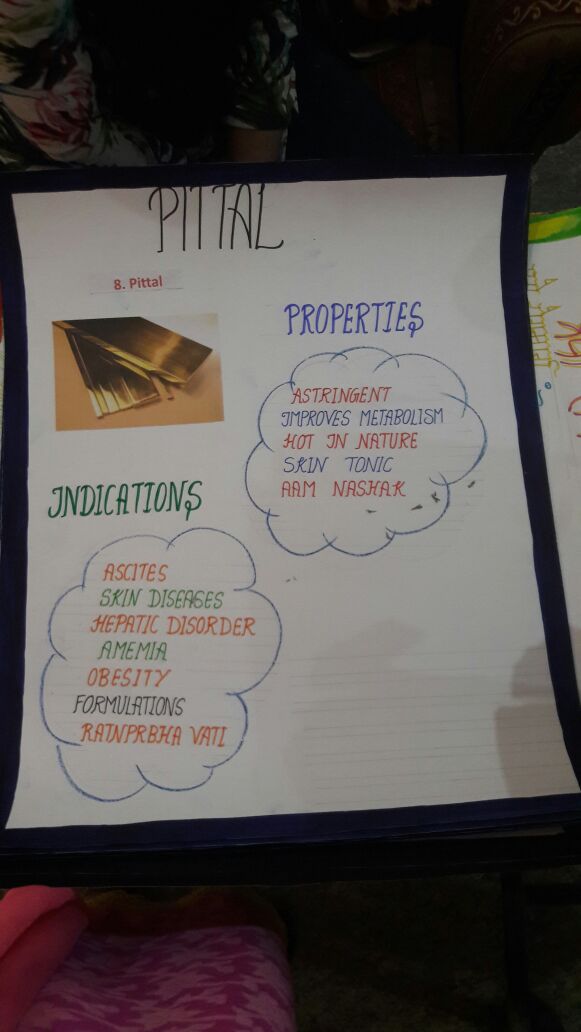 PITTAL
8. Pittal
PROPERTIES
ASTRINGENT
IMPROVES METABOLISM
HOT IN NATURE
SKIN TONIC
AAM NASHAK
INDICATIONS
ASCITES
SKIN DISEASES
HEPATIC DISORDER
AMEMIA
OBESITY
FORMULATIONS
RATNPRBHA VATI